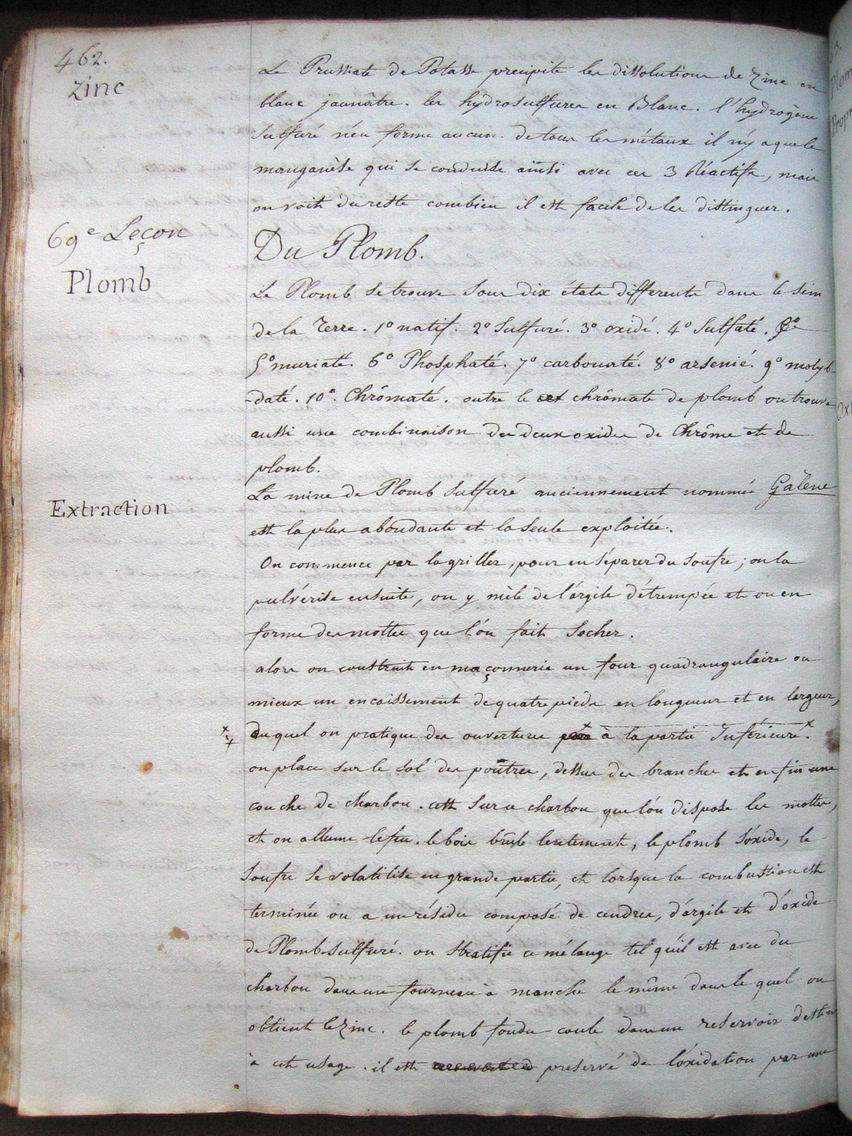 462.
Zinc
Le Prussiate de Potasse precipite les dissolutions de Zinc en
blanc jaunâtre. les hydrosulfures en Blanc. l'hydrogène
Sulfuré n'en forme aucun. de tous les métaux il n'y a que le
manganèse qui se conduise ainsi avec ces 3 Réactifs, mais
on voit du reste combien il est facile de les distinguer.
69e Leçon
Plomb
Du Plomb.
Le Plomb se trouve sous dix états differents dans le sein
de la Terre. 1º natif. 2º Sulfuré. 3º oxidé. 4º Sulfaté.
5º muriaté. 6º Phosphaté. 7º carbonaté. 8º arsenié. 9º molyb-
-daté. 10º. Chrômaté. outre le chrômate de plomb on trouve
aussi une combinaison des deux oxides de Chrôme et de
plomb.
Extraction
La mine de Plomb Sulfuré anciennement nommée Galène
est la plus abondante et la seule exploitée.
On commence par la griller, pour en séparer du soufre; on la
pulvérise ensuite, on y mêle de l'argile détrempée et on en
forme des mottes que l'on fait secher.
alors on construit en maçonnerie un four quadrangulaire ou
mieux un encaissement de quatre pieds en longueur et en largeur,
auquel on pratique des ouvertures à la partie Inférieure.
on place sur le sol des poutres, dessus des branches et enfin une
couche de charbon. c'est sur ce charbon que l'on dispose les mottes,
et on allume le feu. le bois brule lentement, le plomb s'oxide, le
Soufre se volatilise en grande partie, et lorsque la combustion est
terminée on a un résidu composé de cendres, d'argile et d'oxide
de Plomb sulfuré. on stratifie ce mélange tel qu'il est avec du
charbon dans un fourneau à manche le même dans lequel on
obtient le zinc. le plomb fondu coule dans un reservoir destiné
à cet usage. il est preservé de l'oxidation par une